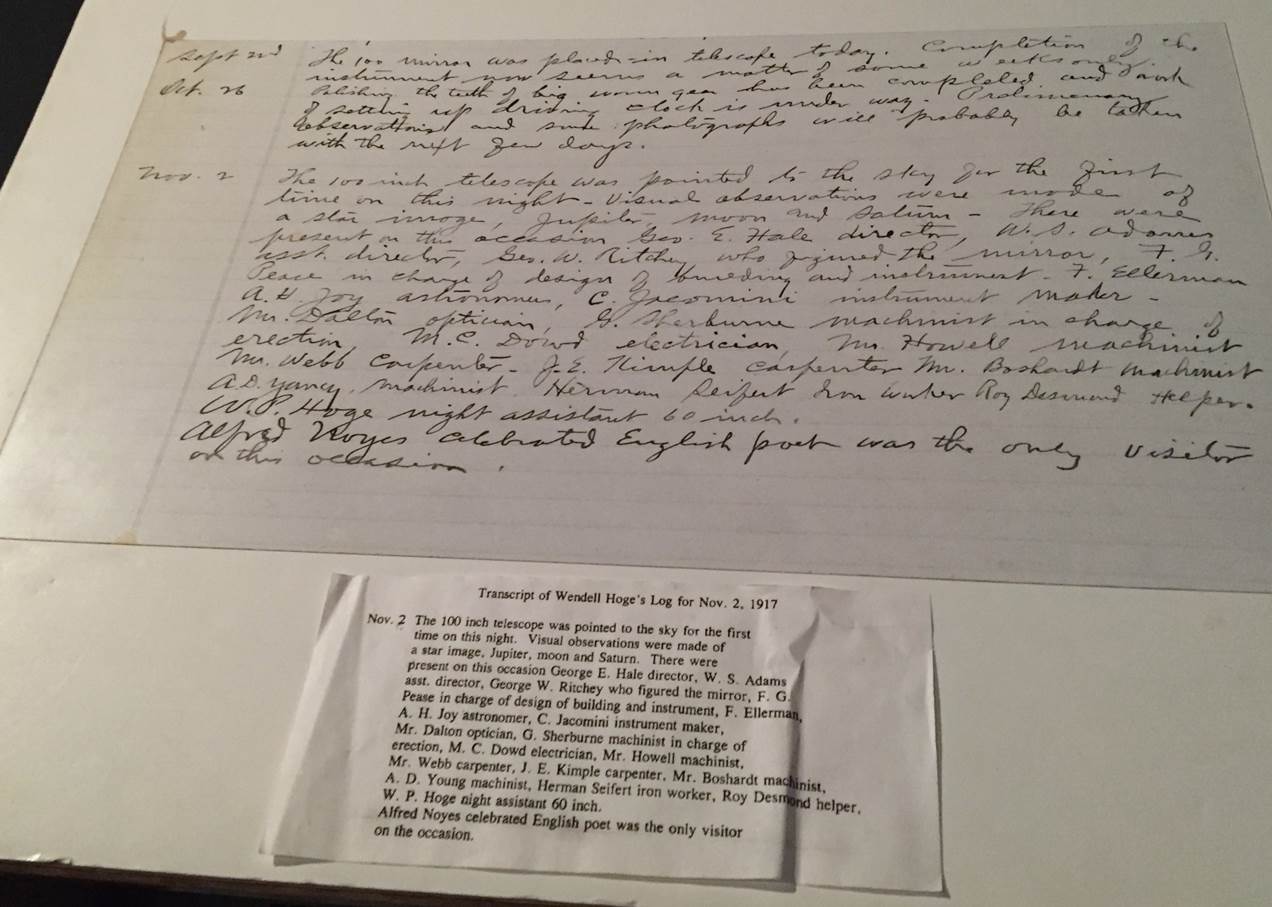 Sept 2nd The 100 mirror was placed in telescope today. Completion of the
instrument now seems a matter of some weeks only.
Oct. 26 Polishing the teeth of big worm gear has been completed and work
of setting up driving clock is under way. Preliminary
observations and some photographs will probably be taken
with the next few days.
Nov. 2 The 100 inch telescope was pointed to the sky for the first
time on this night - Visual observations were made of
a star image, Jupiter, moon and Saturn - There were
present on this occasion Geo. E. Hale director, W. S. Adams
asst. director, Geo. W. Ritchey who figured the mirror, F. G.
Pease in charge of design of building and instrument - F. Ellerman
A. H. Joy astronomer, C. Jacomini instrument maker -
Mr. Dalton optician, G. Sherburne machinist in charge of
erection, M. C. Dowd electrician, Mr. Howell machinist
Mr. Webb Carpenter - J. E. Kimple carpenter Mr. Boshardt machinist
A. D. machinist Herman Seifert Iron worker Roy Desmond Helper.
W. P. Hoge night assistant 60 inch.
Alfred Noyes celebrated English poet was the only visitor
on this occasion.
Transcript of Wendell Hoge's Log for Nov. 2, 1917
Nov. 2 The 100 inch telescope was pointed to the sky for the first
time on this night. Visual observations were made of
a star image, Jupiter, moon and Saturn. There were
present on this occasion George E. Hale director, W. S. Adams
asst. director, George W. Ritchey who figured the mirror, F. G.
Pease in charge of design of building and instrument, F. Ellerman,
A. H. Joy astronomer, C. Jacomini instrument maker,
Mr. Dalton optician, G. Sherburne machinist in charge of
erection, M. C. Dowd electrician, Mr. Howell machinist,
Mr. Webb carpenter, J. E. Kimple carpenter, Mr. Boshardt machinist,
A. D. Young machinist, Herman Seifert iron worker, Roy Desmond helper,
W. P. Hoge night assistant 60 inch.
Alfred Noyes celebrated English poet was the only visitor
on the occasion.